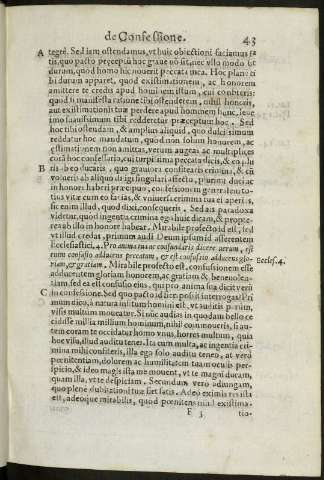 de Confessione. 43
A tegrè. Sed iam ostendamus, vt huic obiectioni faciamus sa
tis, quo pacto præceptū hoc graue nō sit, nec vllo modo sit
durum, quod homo hic nouerit peccata mea. Hoc planè ti
bi durum apparet, quod existimationem, ac honorem
amittere te credis apud hominem istum, cui confiteris:
quod si manifesta ratione tibi ostenderem, nihil honoris,
aut existimationis tuæ perdere apud hominem hunc, leue
imo suauissimum tibi redderetur præceptum hoc. Sed
hoc tibi ostendam, & amplius aliquid, quo dulcissimum
reddatur hoc mandatum, quod non solum honorem, ac
estimationem non amittas, verum augeas ac multiplices
corā hoc confessario, cui turpissima peccata dicis, &
B ris: beo ducaris, quo grauiora confitearis crimina, &
volueris ab aliquo digni singulari affectu, plurimi duci ac
in honore haberi præcipuo, confessionem generalem to-
tius vitæ cum eo facias, & vniuersa crimina tua ei aperi
sic enim illud, quod dixi, consequeris. Sed ais paradoxa
videtur, quod ingentia crimina ego huic dicam, & prop te
rea ab illo in honore habear. Mirabile profecto id est, sed
vt illud credas, primum audi Deum ipsum id asserentem
Ecclesiastici, 4. Pro anima tua ne confundaris dicere verum, est
enim confusio adducens peccatum, & est confusio adducens glo- Eccles. 4.
riam, & gratiam. Mirabile profecto est, confusionem esse
adducentem gloriam honorem, ac gratiam & beneuolen-
tiam, sed ea est confusio eius, qui pro anima sua dicit verū
C in confessione. Sed quo pacto id fieri possit interrogas? Pri
mum dico, à natura insitum homini est, vt auditis parūm,
visis multùm moueatur. Si nūc audias in quodam bello ce
cidisse millia millium hominum, nihil commoueris, si au-
tem coram te occidatur homo vnus, horres multum, quia
hoc visu, illud auditu tenes. Ita cum multa, ac ingentia cri-
mina mihi confiteris, illa ego solo auditu teneo, at verò
pœnitentiam, dolorem, ac humilitatem tuam oculis per-
spicio, & ideo magis ista me mouent, vt te magni ducam,
quam illa, vt te despiciam. Secundum verò adiungam,
quo planè dubitationi tuæ fiet satis. Adeò eximia res ista
est, adeoque mirabilis, quod pœnitens nihil existima-
F 3 tio-